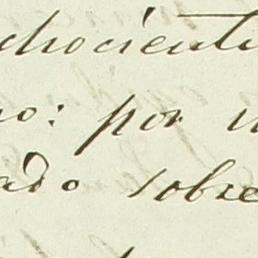 chocient
no: por
ado sobre